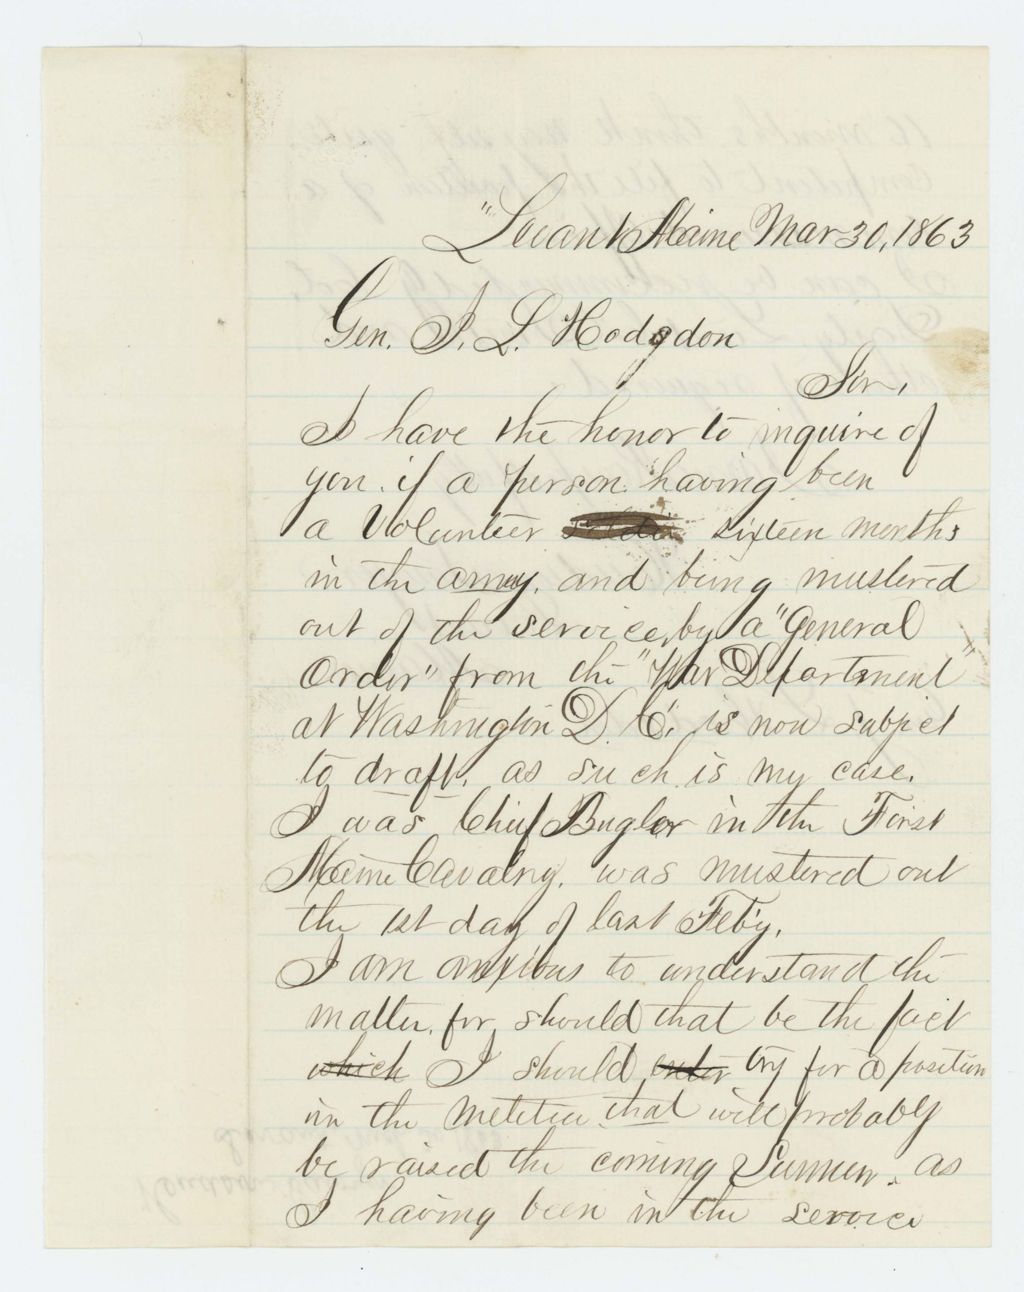 "Levant Maine Mar 30, 1863
Gen. J. L. Hodgdon
Sir,
I have the honor to inquire of
you. if a person having been
a Volunteer sixteen months
in the army, and being mustered
out of the service, by a "General
Order" from the "War Department"
at Washington D. C. is now subject
to draft. as such is my case.
I was Chief Bugler in the First
Maine Cavalry. was mustered out
the 1st day of last Feb'y.
I am anxious to understand the
matter, for, should that be the fact
which I should enter try for a position
in the Melitia that will probably
be raised the coming Summer. as
I having been in the service